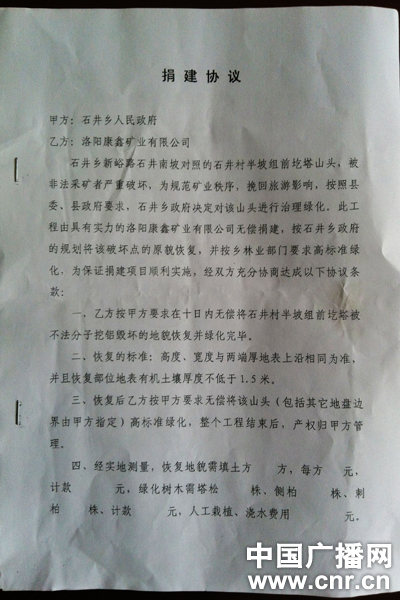 捐建协议
甲方：石井乡人民政府
乙方：洛阳康鑫矿业有限公司
石井乡新峪路石井南坡对照的石井村半坡组前圪塔山头，被
非法采矿者严重破坏，为规范矿业秩序，挽回旅游影响，按照县
委、县政府要求，石井乡政府决定对该山头进行治理绿化，此工
程由具有实力的洛阳康鑫矿业有限公司无偿捐建，按石井乡政府
的规划将该破坏点的原貌恢复，并按乡林业部门要求高标准绿
化，为保证捐建项目顺利实施，经双方充分协商达成以下协议条
款：
一、乙方按甲方要求在十日内无偿将石井村半坡组前圪塔被
不法分子挖铝毁坏的地貌恢复并绿化完毕。
二、恢复的标准：高度、宽度与两端厚地表上沿相同为准，
并且恢复部位地表有机土壤厚度不低于1.5米。
三、恢复后乙方按甲方要求无偿将该山头（包括其它地盘边
界由甲方指定）高标准绿化，整个工程结束后，产权归甲方管
理。
四、经实地测量，恢复地貌需填土方 方，每方 元，
计款 元，绿化树木需塔松 株、侧柏 株、刺
柏 株、计款 元，人工栽植、浇水费用 元。
中国广播网
www.cnr.cn